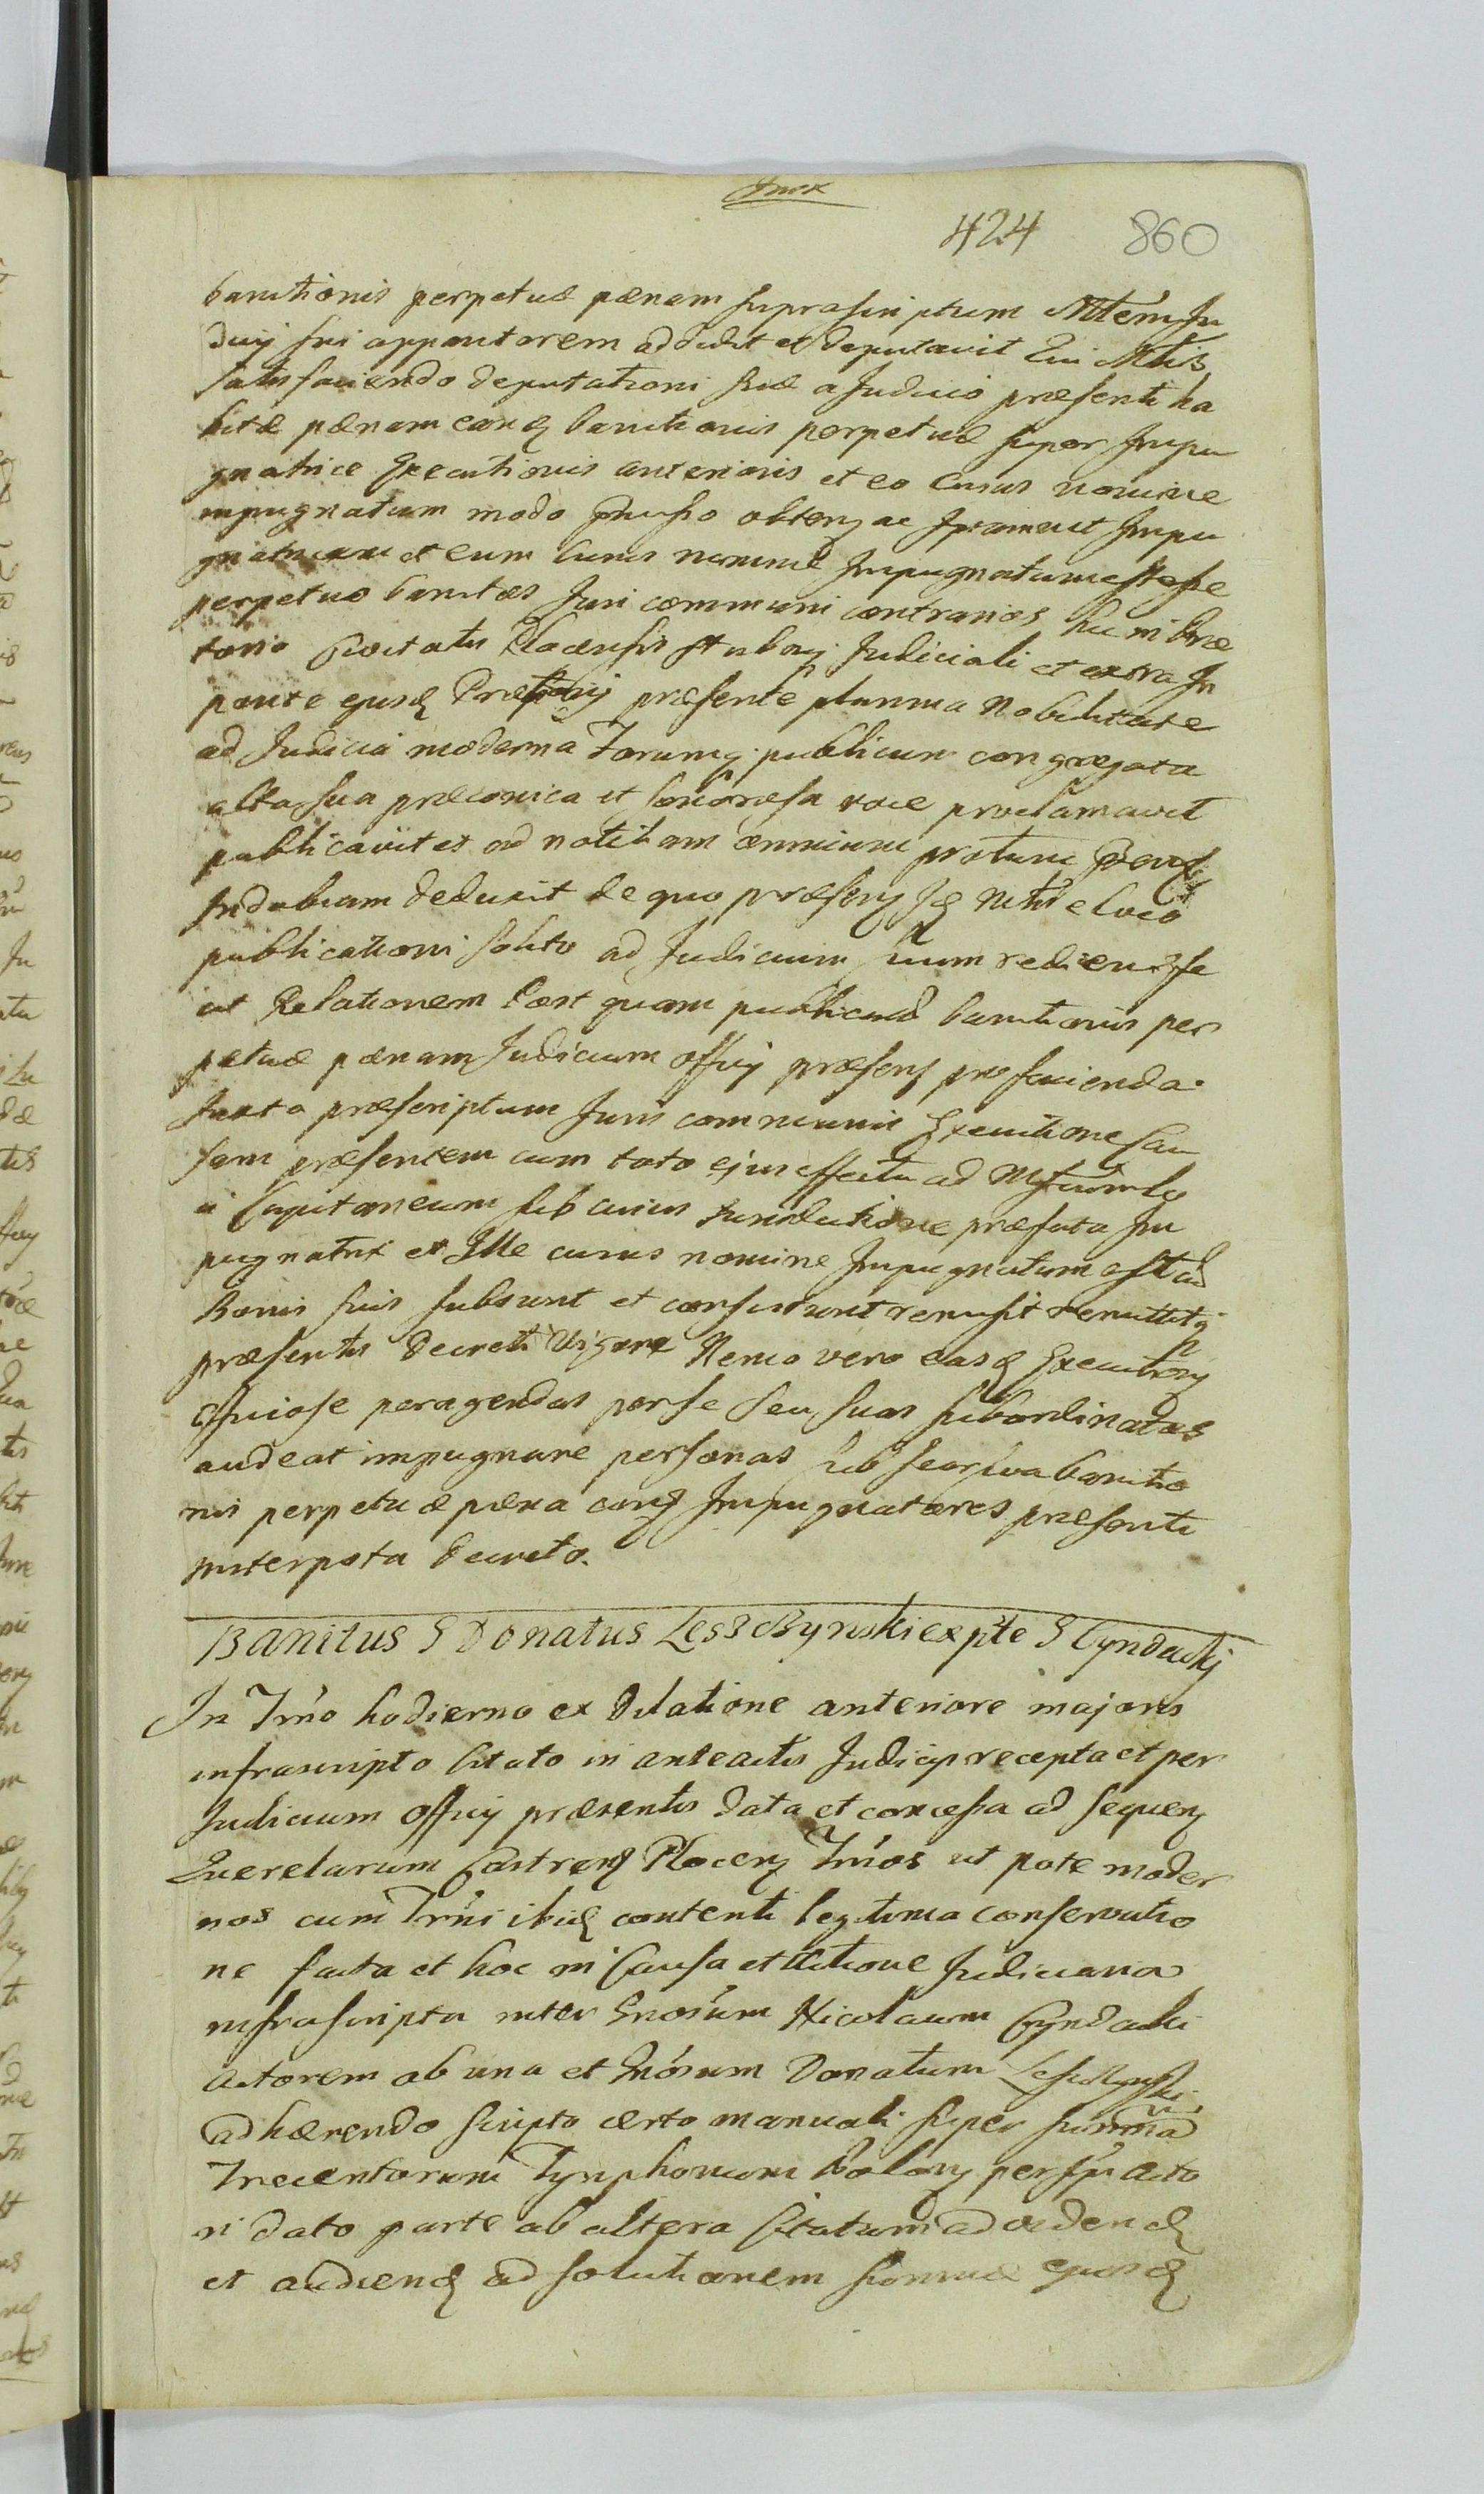 424 860
banitionis perpetuæ pænam suprascriptum Mtem Ju
dicij sui apparitorem addidit et deputavit Qui Mtis
satisfaciendo deputationi suæ a Judicio præsenti ha
bitæ pænam eandę banitionis perpetuæ super Impu
gnatrice Executionis anterioris et eo cuius nomine
impugnatum modo obtenz ac Impu
gnatricem et eum cuius nomine Impugnatum est esse
perpetuo banitos Juri communi contrarios hic in Præ
torio Civitatis Plocensis Stubaq Judiciali et extra In
parte ejusdę Prætorij præsente plurima Nobilitate
ad Judicia moderna Forumq publicum congregata
alta sua præconica et sonorosa voce proclamavit
publicavit et ad notitiam omnium
Indubiam deduxit de quo præsenz Idę Mtis e loco
publicationi solito ad Judicium suum rediens fe
cit Relationem Post quam publicatæ banitionis per
petuæ pænam Judicium officij præsenz pro facienda
Juxta præscriptum Juris communis Executione Cau
sam præsentem cum toto ejus effectu ad
i Capitaneum sub cuius Jurisdictione præfata Im
pugnatrix et Ille cuius nomine Impugnatum est cū
Bonis suis subsunt et consistunt remisit remittitq
præsentis Decreti Vigore Nemo vero easdę Executionz
officiose peragendas per se seu suas subordinatas
audeat impugnare personas sub banitio
nis perpetuæ pæna Impugnatores præsenti
interposita Decreto.
Banitus G Donatus Leszczynski ex pte G Cyndacki
In Trno hodierno ex Dilatione anteriore majoris
infrascripto Citato in anteactis Judicijs recepta et per
Judicium officij præsentis data et concessa ad sequenz
Querelarum Castrenz Plocenz Trnos ut pote moder
nos cum Trni ibidę contenti legitima conservatio
ne facta et hoc in Causa et Actione Judiciaria
infrascripta inter Gnosum Nicolaum Cyndacki
Actorem ab una et Gnosum Donatum Leszczynski
adhærendo scripto certo manuali super summā
Trecentorum Tynphonum Polonz per Acto
ri dato parte ab altera Citatum ad videndę
et audiendę ad solutionem summæ ejusdę